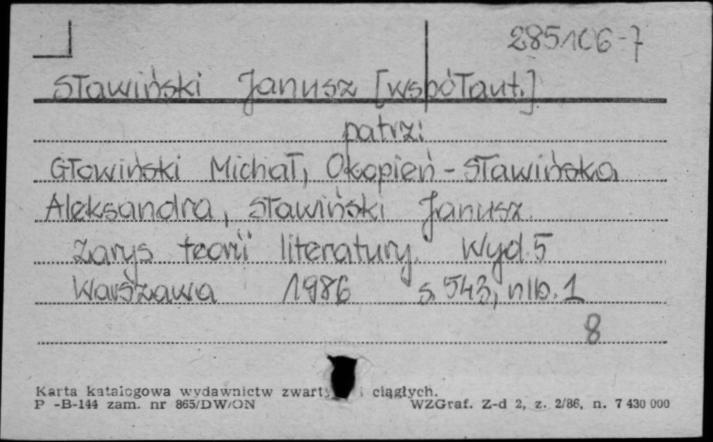 285106-7
Sławiński Janusz [współaut.]
patrz:
Głowiński Michał, Okopień-Sławińska
Aleksandra, Sławiński Janusz
Zarys teorii literatury. Wyd. 5
Warszawa 1986 s. 543, nlb. 1
8
Karta katalogowa wydawnictw zwartych i ciągłych.
P -B-144 zam. nr 865/DW/ON WZGraf. Z-d 2, z. 2/86, n. 7 430 000